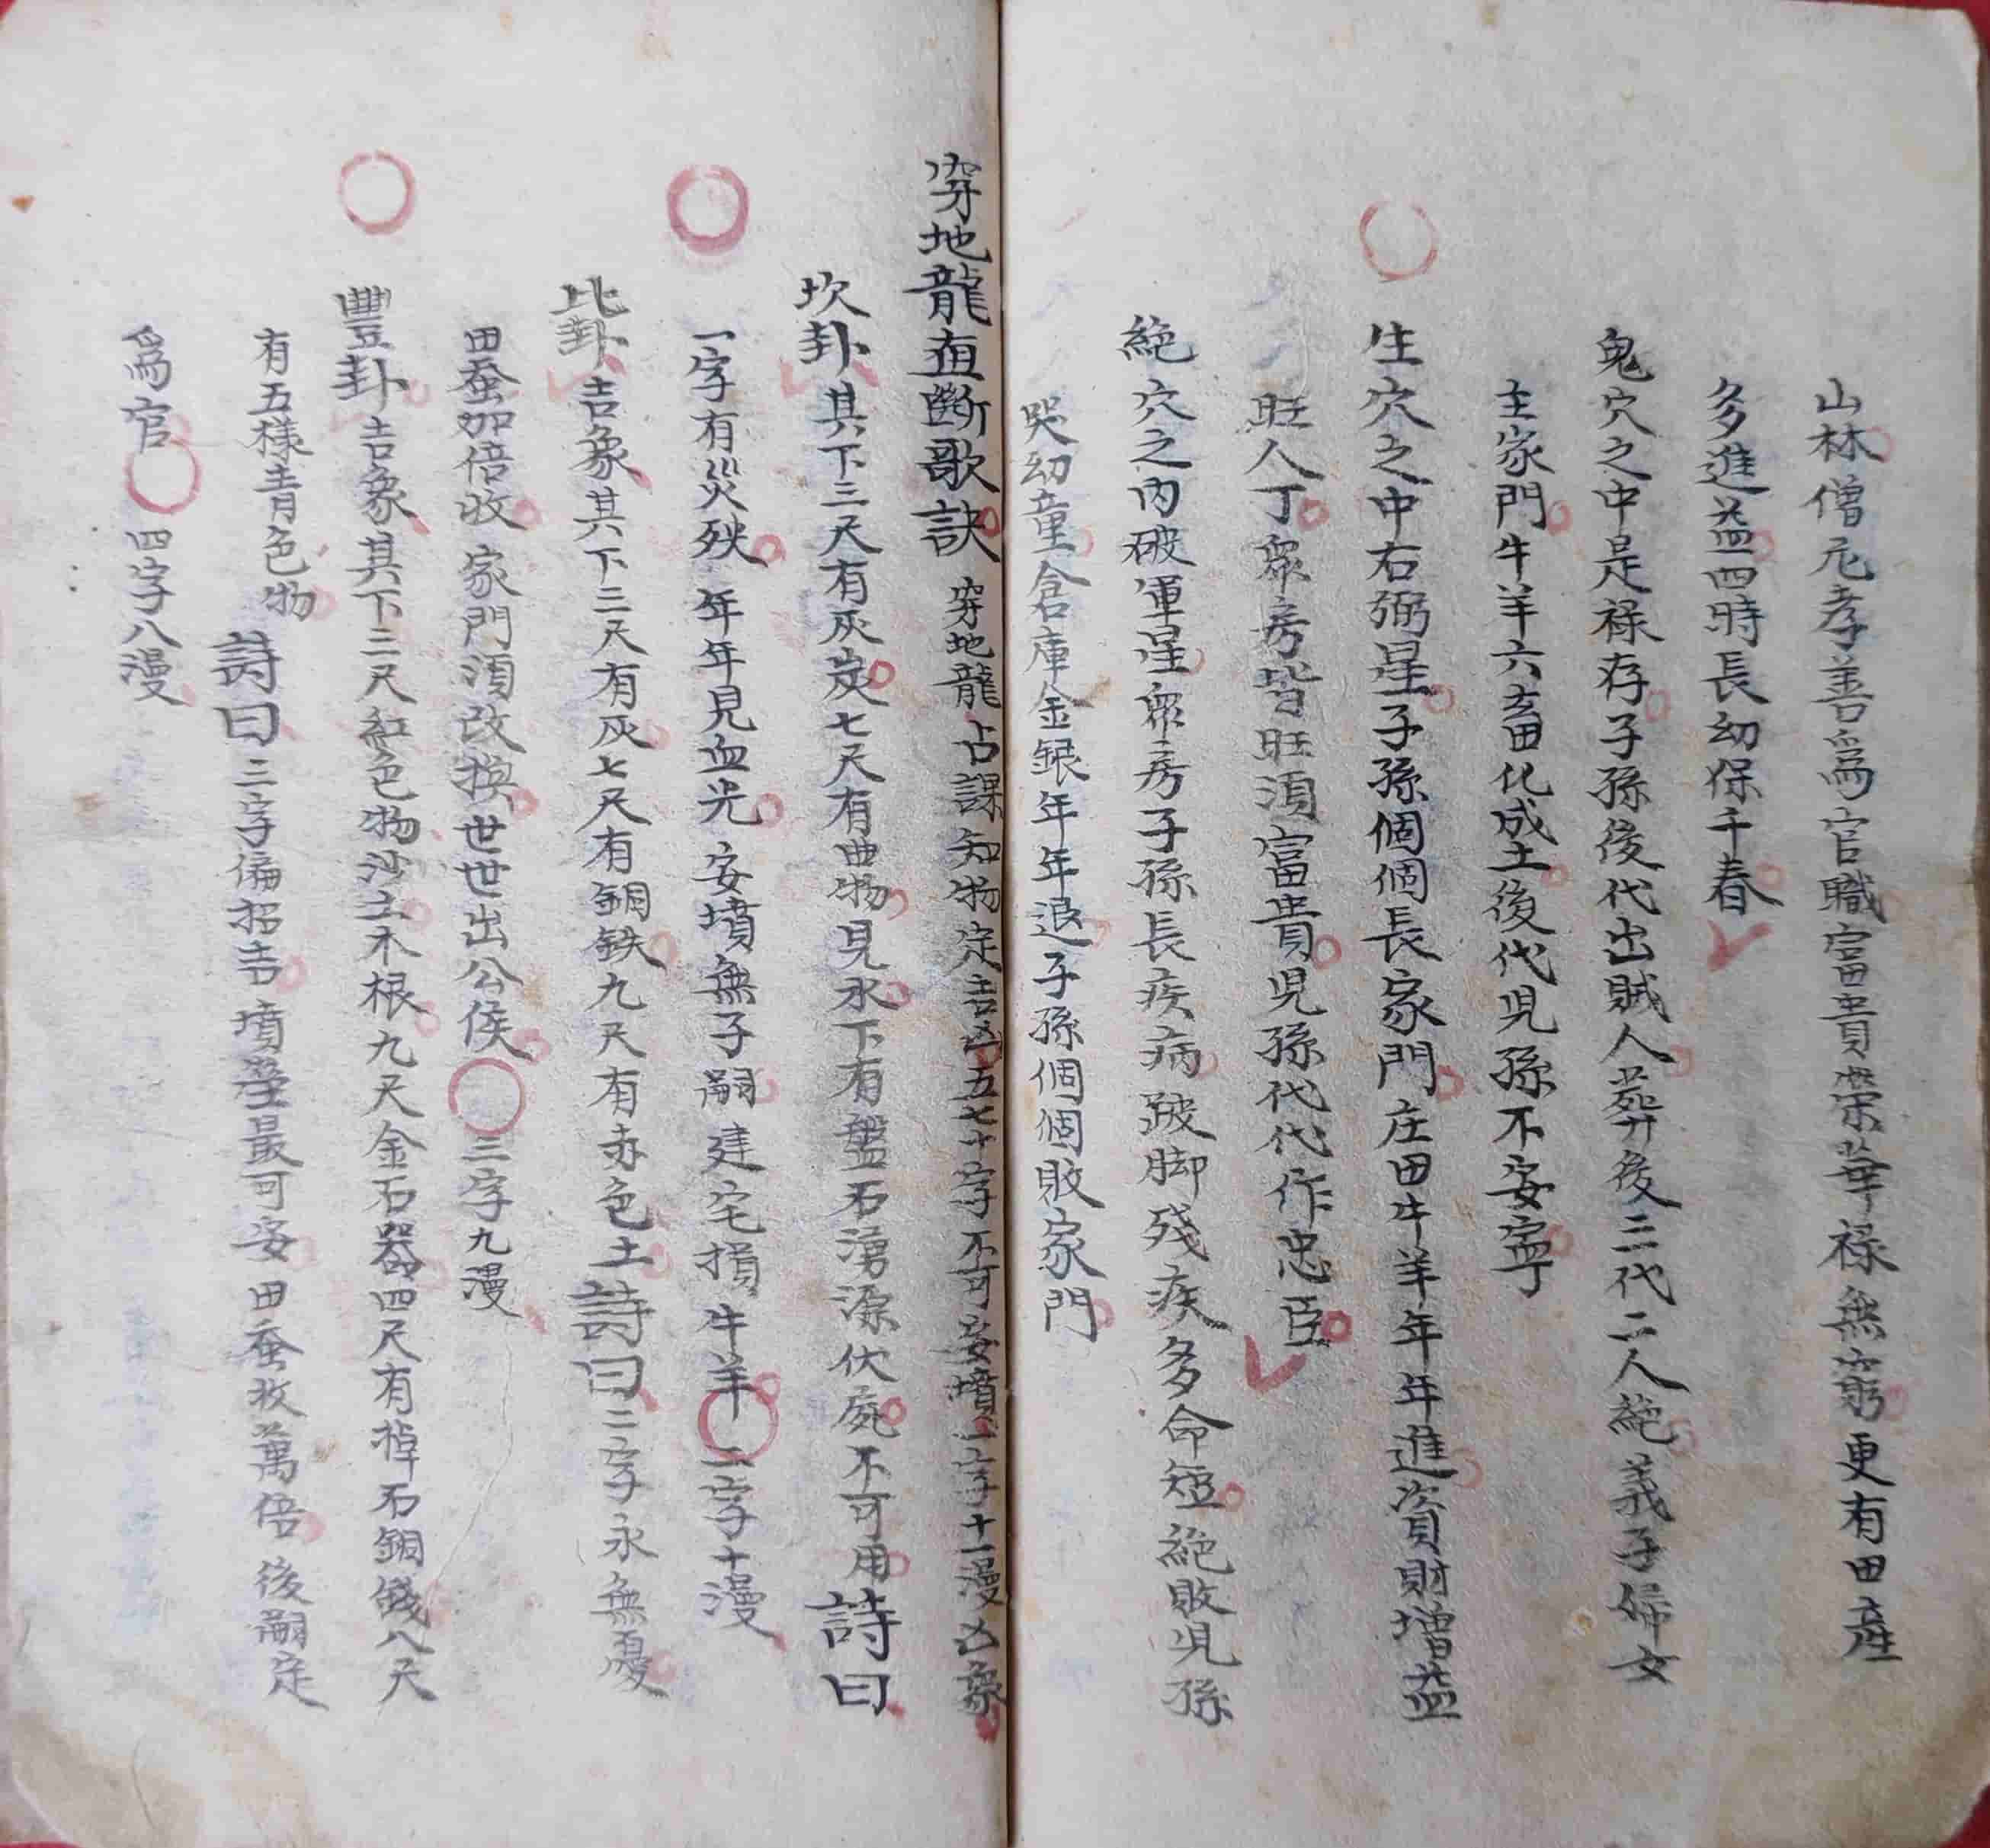 山林僧尼孝善爲官職富貴榮華禄無窮更有田產
多進益四時長幼保千春
鬼穴之中是禄存子孫後代出賊人葬後三代二人絕義子婦女
主家門牛羊六畜化成土後代児孫不安寧
生穴之中右弼星子孫個個長家門庄田牛羊年年進資財增益
旺人丁眾房皆旺湏富貴児孫代代作忠臣
絕穴之內破軍星眾房子孫長疾病跛脚殘疾多命短絕敗児孫
哭幼童倉庫金銀年年退子孫個個敗家門
穿地龍直斷歌訣 穿地龍占課知物定吉凶五七十字不可安墳一字十一漫凶象
坎卦其下三尺有灰炭七尺有曲物見水下有盤石湧源伏屍不可用詩曰
一字有災殃年年見血光安墳無子嗣建宅損牛羊〇二字十漫
比卦吉象其下三尺有灰七尺有銅鉄九尺有赤色土詩曰二字永無憂
田蚕加倍收家門湏改換世世出公侯〇三字九漫
豐卦吉象其下二尺紅色物沙土木根九尺金石器四尺有棹石銅錢八尺
有五樣青色物 詩曰三字偏招吉墳塋最可安田蚕收萬倍後嗣定
爲官〇四字八漫